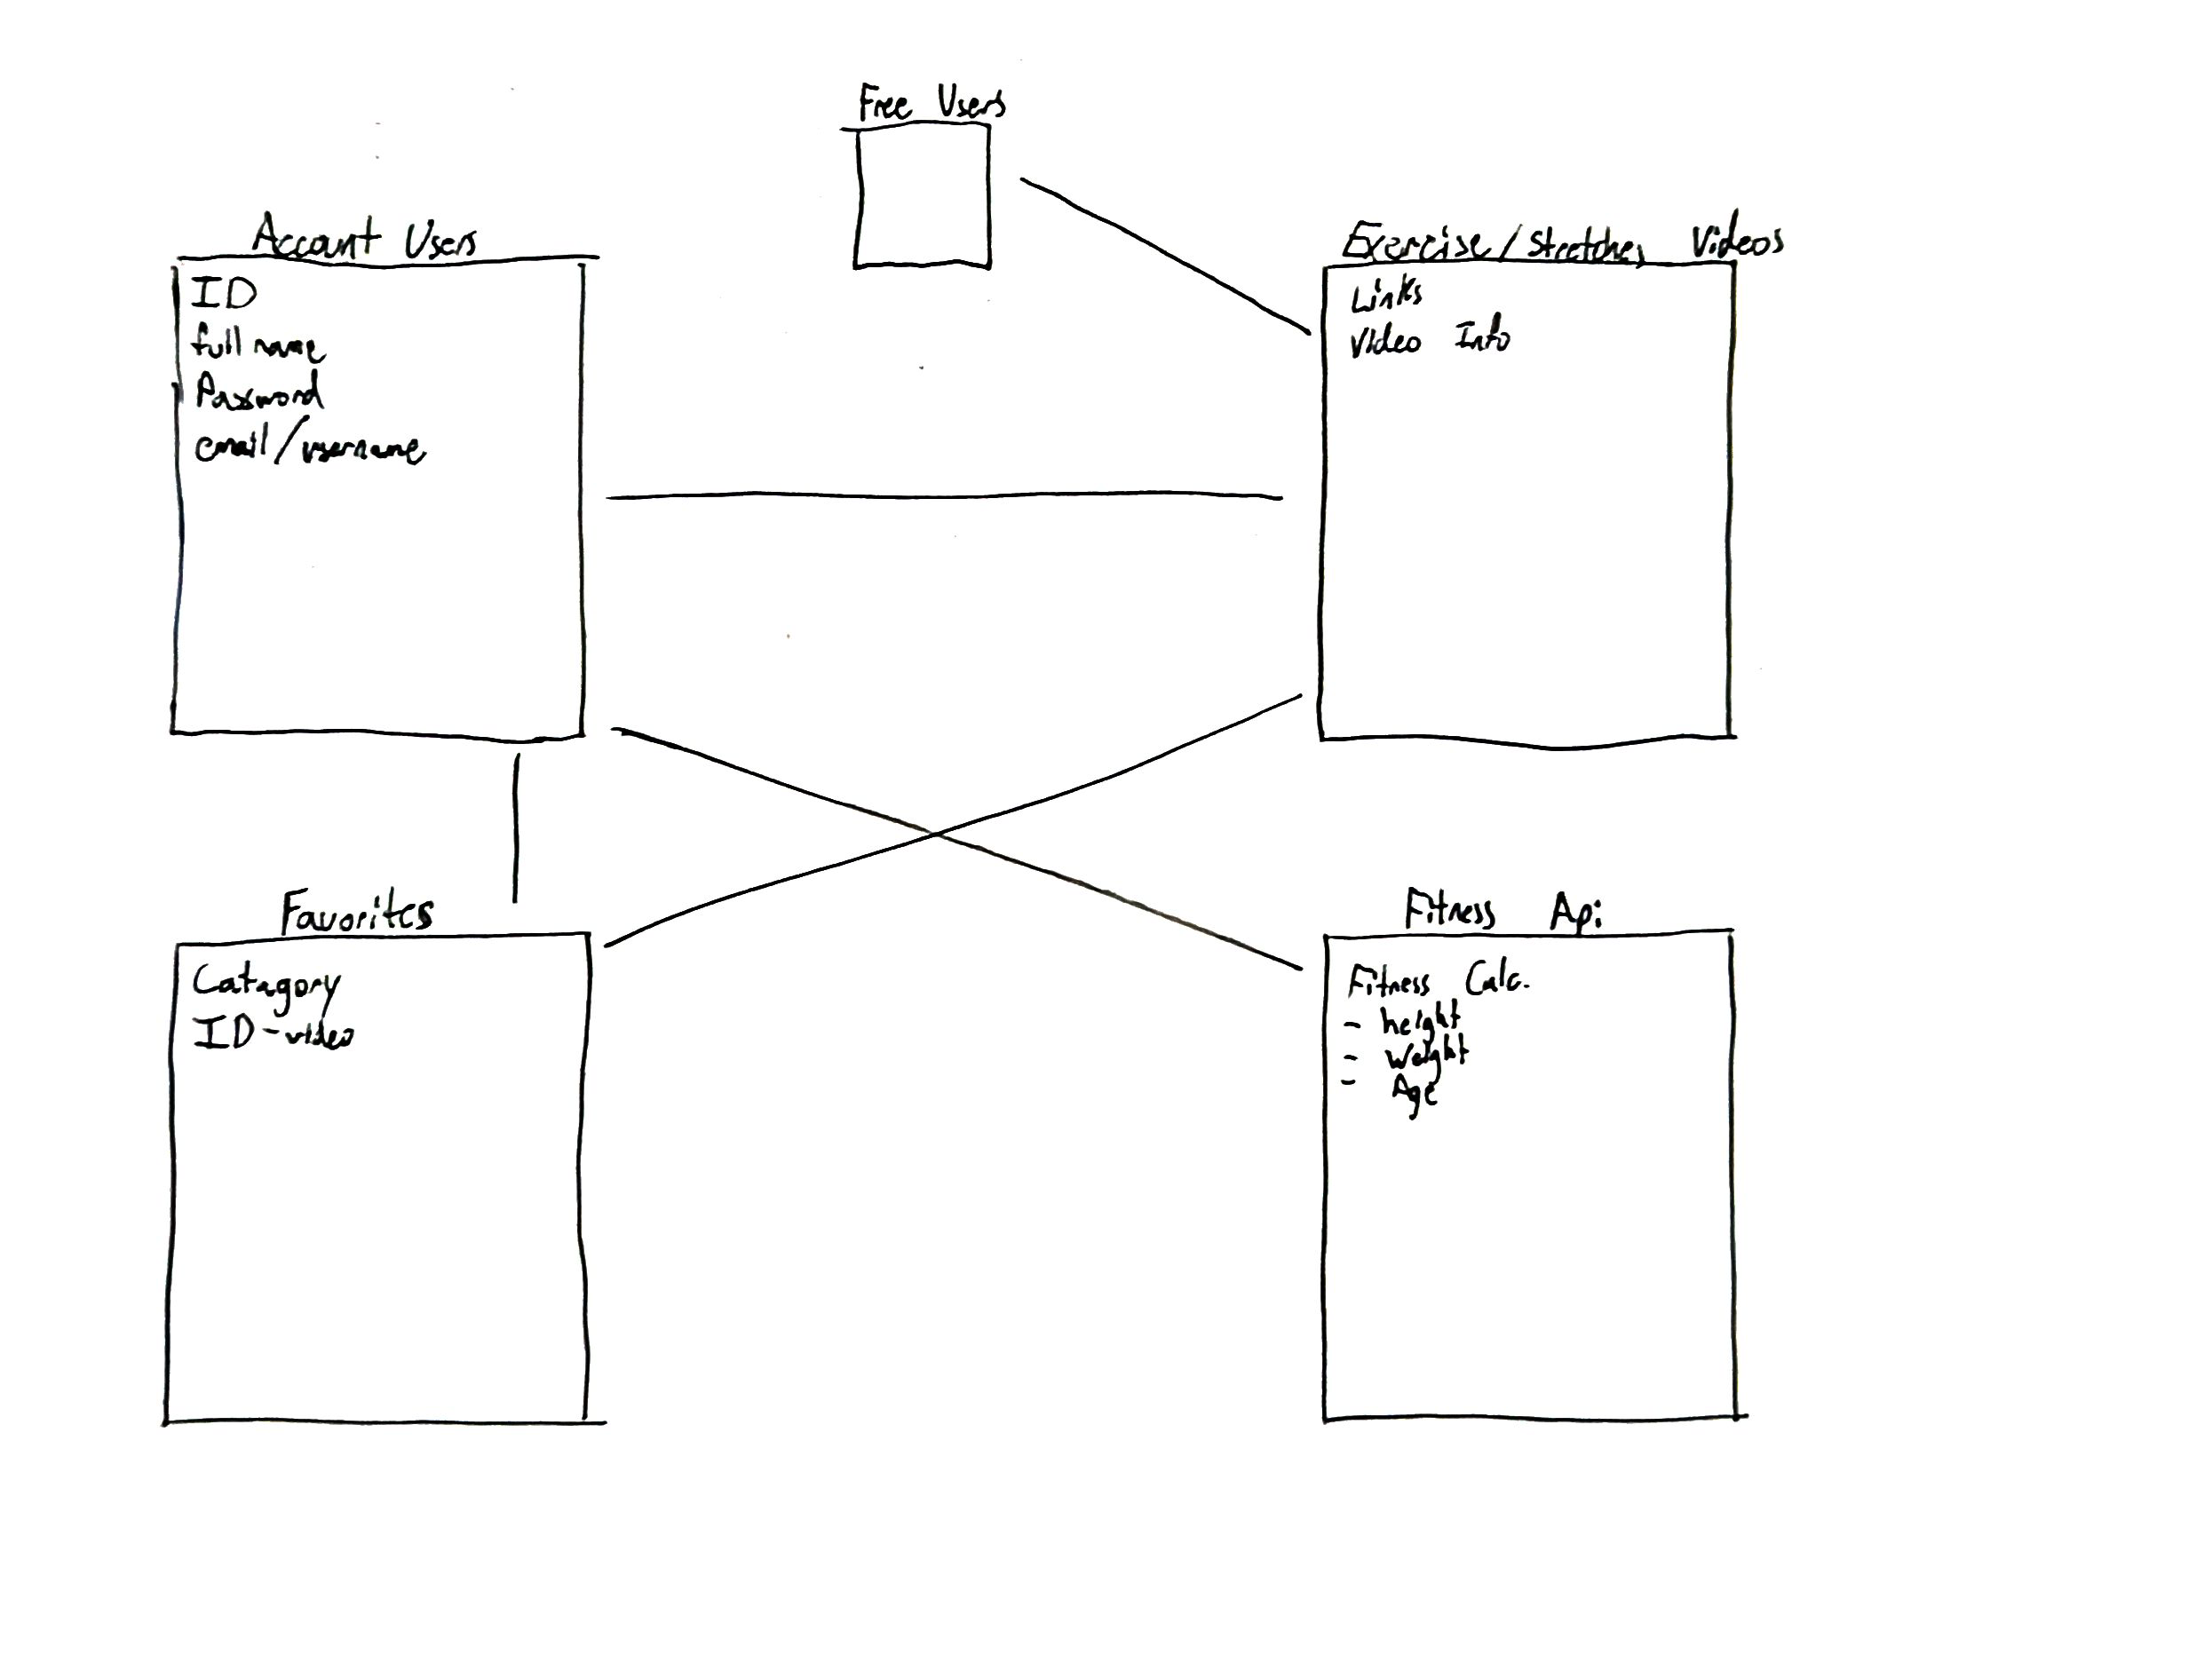 Free Users
Account Users
ID
full name
Password
email/username
Exercise/Stretches Videos
Links
Video Info
Favorites
Catagory
ID-video
Fitness Api
Fitness Calc.
- height
- weight
- Age